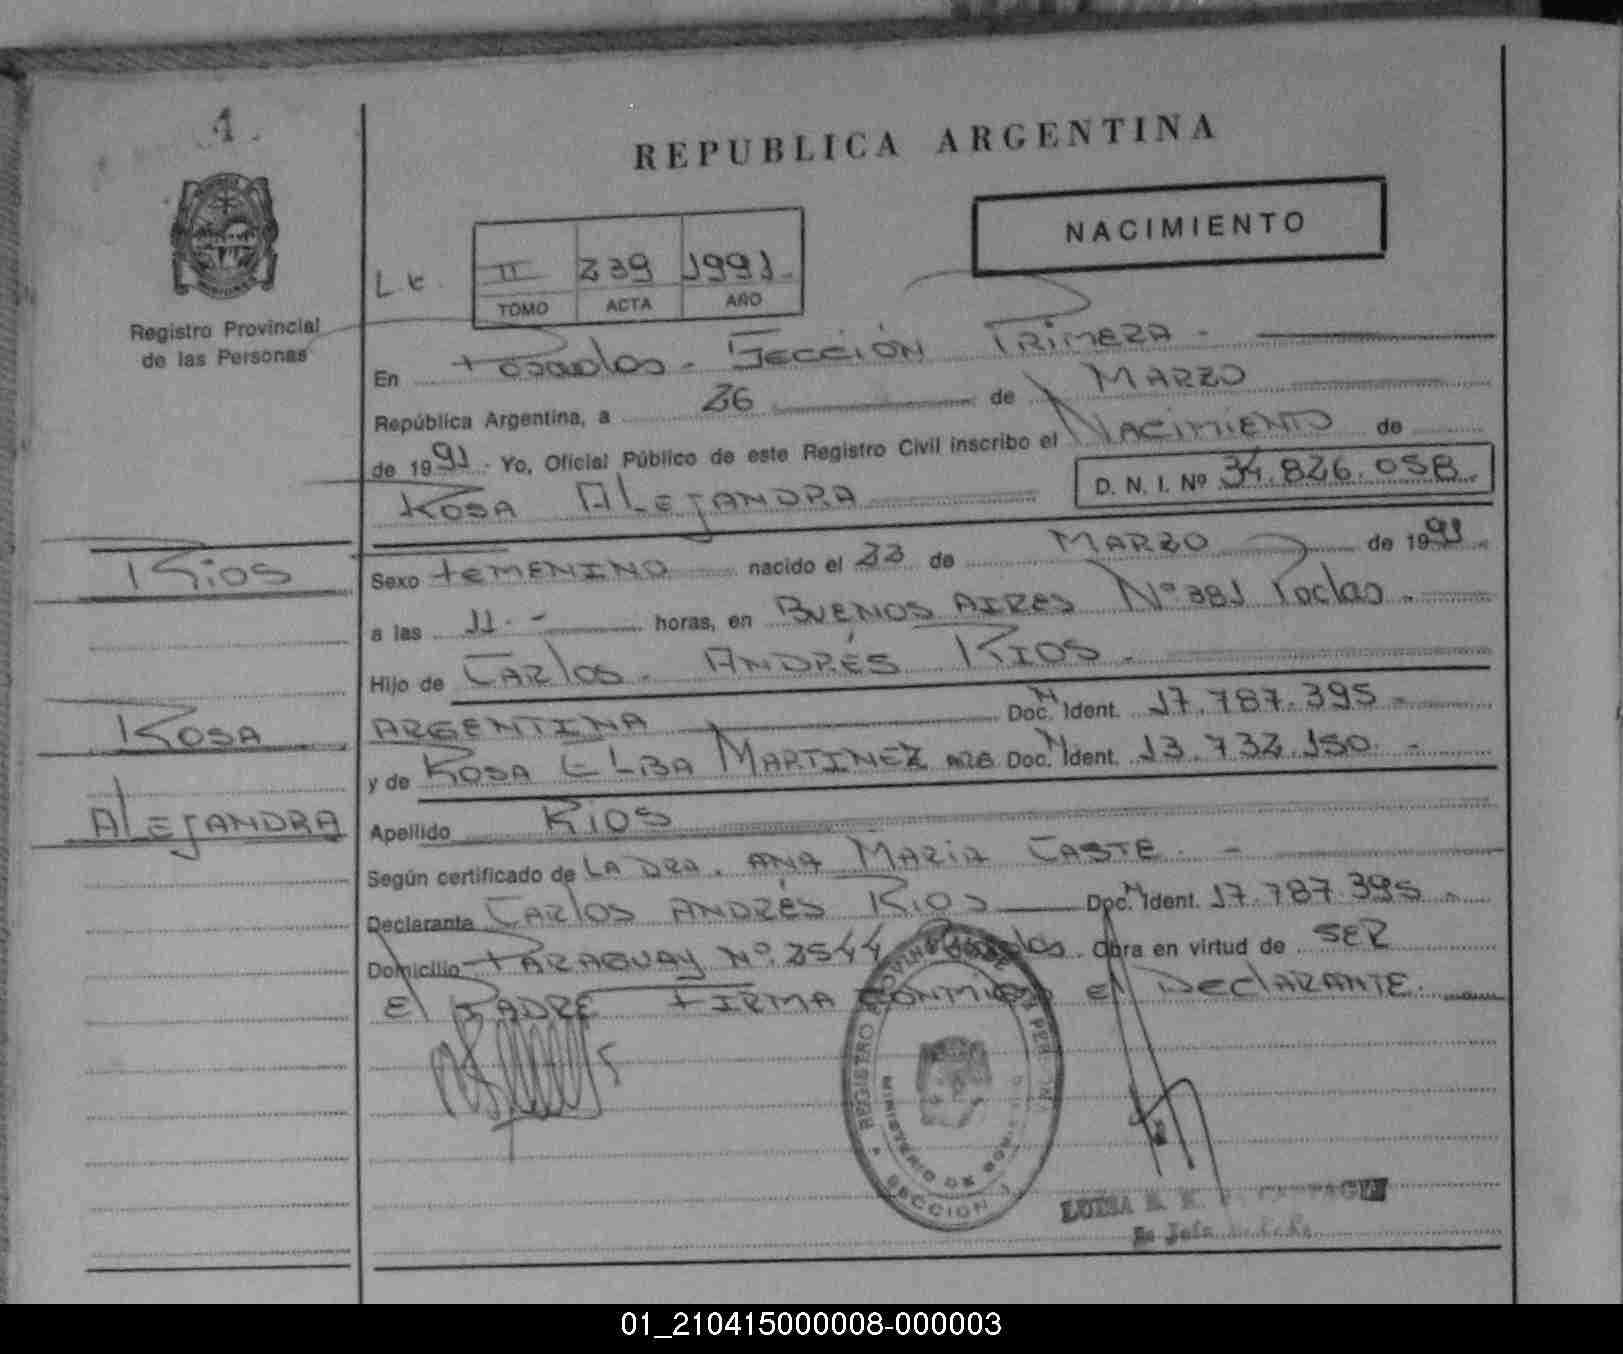 1.
REPUBLICA ARGENTINA
NACIMIENTO
II 239 1991
TOMO ACTA AÑO
Registro Provincial
de las Personas
En Posadas - Sección Primera -
República Argentina, a 26 de Marzo
de 1991 - Yo, Oficial Público de este Registro Civil inscribo el Nacimiento de
Rosa Alejandra D. N. I. Nº 34.826.058
Rios
Sexo Femenino nacido el 22 de Marzo de 1991
a las 11. - horas, en Buenos Aires Nº 381 Pdas.
Hijo de Carlos Andrés Rios.
Rosa
Argentina Doc. M Ident. 17.787.395 -
y de Rosa Elba Martinez Doc. M Ident. 13.732.150 -
Alejandra
Apellido Rios
Según certificado de La Dra. Ana Maria -
Declarante Carlos Andrés Rios Doc. M Ident. 17.787.395 -
Domicilio Paraguay Nº 2544 Posadas. Obra en virtud de ser
el Padre Firma conmigo el Declarante.
REGISTRO PROVINCIAL DE
MINISTERIO DE
SECCION 1
LUISA
01_210415000008-000003